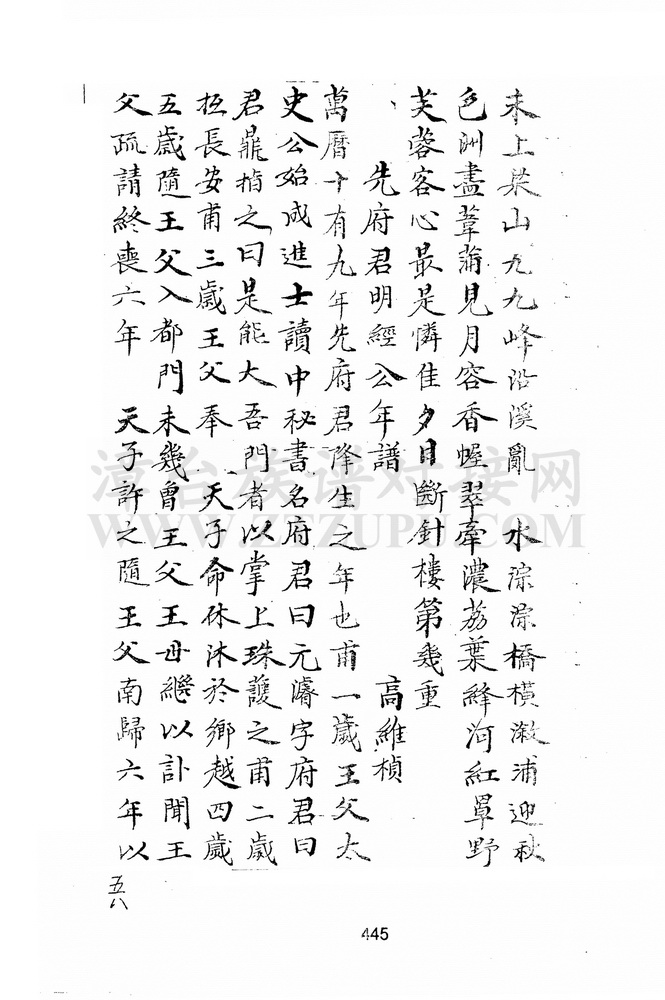 未上梁山九九峰沿溪亂　水淙淙橋橫漵浦迎秋
色洲盡葦蒲見月容香幄翠牽濃荔葉絳河紅罩野
芙蓉客心最是憐佳夕目斷針樓第幾重
先府君明經公年譜　高維楨
萬曆十有九年先府君降生之年也甫一歲王父太
史公始成進士讀中秘書名府君曰元濬字府君曰
君鼎楨之曰是能大吾門者以掌上珠護之甫二歲
抵長安甫三歲王父奉　天子命休沐於鄉越四歲
五歲隨王父入都門未幾曾王父王母繼以訃聞王
父疏請終喪六年　天子許之隨王父南歸六年以
五八
445
漳台族谱对接网
WWW.ZTZUPU.COM